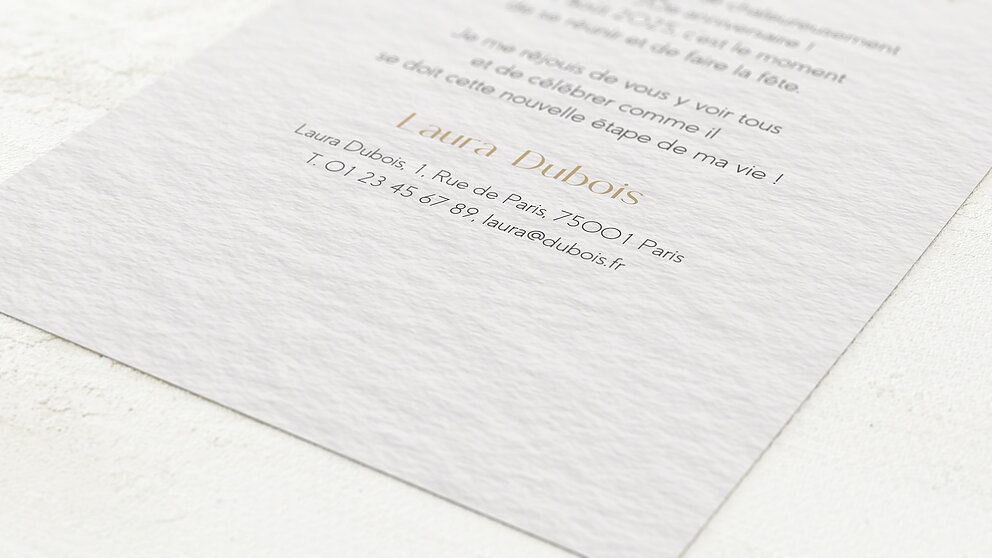 chaleureusement
anniversaire !
août 2025, c'est le moment
de se réunir et de faire la fête.
Je me réjouis de vous y voir tous
et de célébrer comme il
se doit cette nouvelle étape de ma vie !
Laura Dubois
Laura Dubois, 1, Rue de Paris, 75001 Paris
T. 01 23 45 67 89, laura@dubois.fr